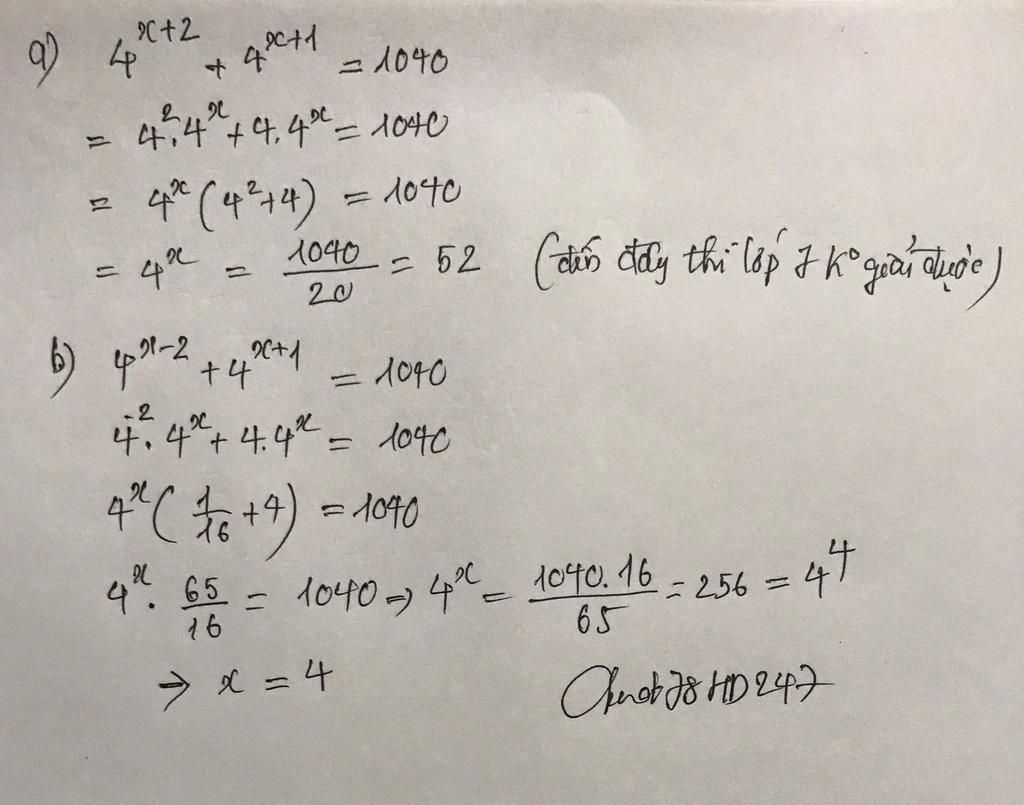 a) 4^{x+2} + 4^{x+1} = 1040
= 4^2.4^x + 4.4^x = 1040
= 4^x (4^2+4) = 1040
= 4^x = 1040/20 = 52 (đến đây thì lớp 7 k° giải được)
b) 4^{x-2} + 4^{x+1} = 1040
4^{-2}. 4^x + 4.4^x = 1040
4^x ( 1/16 + 4) = 1040
4^x . 65/16 = 1040 => 4^x = 1040.16/65 = 256 = 4^4
=> x = 4